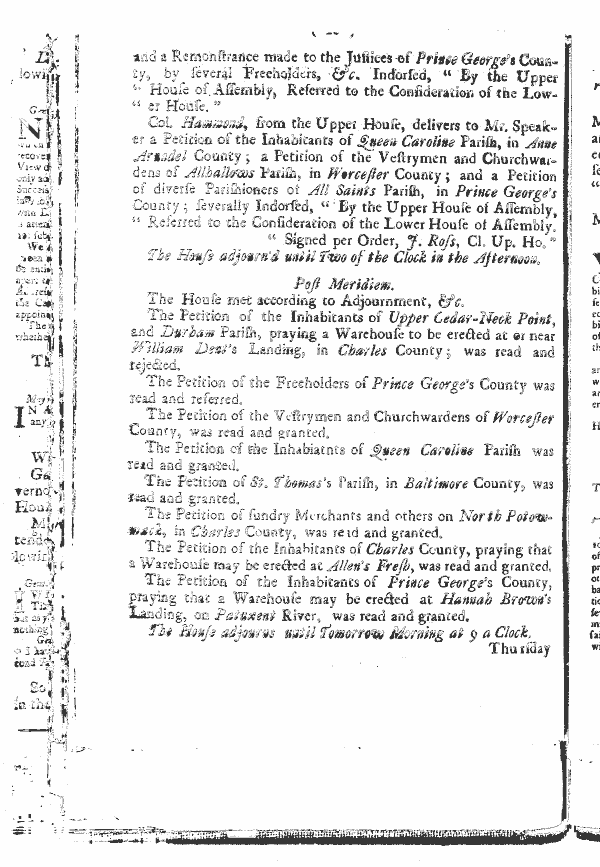 and a Remonſtrance made to the Juſtices of Prince George's Coun-
ty, by ſeveral Freeholders, &c. Indorſed, " By the Upper
" Houſe of Aſſembly, Referred to the Conſideration of the Low-
" er Houſe. "
Col. Hammond, from the Upper Houſe, delivers to Mr. Speak-
er a Petition of the Inhabitants of Queen Caroline Pariſh, in Anne
Arundel County; a Petition of the Veſtrymen and Churchwar-
dens of Allhallows Pariſh, in Worceſter County; and a Petition
of diverſe Pariſhioners of All Saints Pariſh, in Prince George's
County; ſeverally Indorſed, " By the Upper Houſe of Aſſembly,
" Referred to the Conſideration of the Lower Houſe of Aſſembly.
" Signed per Order, J. Roſs, Cl. Up. Ho."
The Houſe adjourn'd until Two of the Clock in the Afternoon.
Poſt Meridiem.
The Houſe met according to Adjournment, &c.
The Petition of the Inhabitants of Upper Cedar-Neck Point,
and Durham Pariſh, praying a Warehouſe to be erected at or near
William Dent's Landing, in Charles County; was read and
rejected.
The Petition of the Freeholders of Prince George's County was
read and referred.
The Petition of the Veſtrymen and Churchwardens of Worceſter
County, was read and granted.
The Petition of the Inhabiatnts of Queen Caroline Pariſh was
read and granted.
The Petition of St. Thomas's Pariſh, in Baltimore County, was
read and granted.
The Petition of ſundry Merchants and others on North Potow-
mack, in Charles County, was read and granted.
The Petition of the Inhabitants of Charles County, praying that
a Warehouſe may be erected at Allen's Freſh, was read and granted.
The Petition of the Inhabitants of Prince George's County,
praying that a Warehouſe may be erected at Hannah Brown's
Landing, on Patuxent River, was read and granted.
The Houſe adjourns until Tomorrow Morning at 9 a Clock.
Thurſday